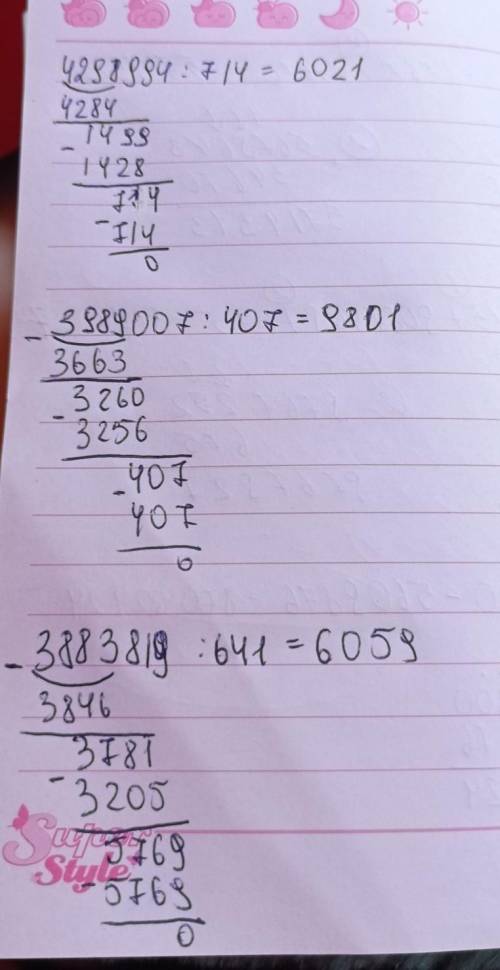 4298994 : 714 = 6021
4284
- 1499
1428
714
- 714
0
- 3989007 : 407 = 9801
3663
- 3260
3256
- 407
407
0
- 3883819 : 641 = 6059
3846
- 3781
3205
5769
- 5769
0
Super
Style